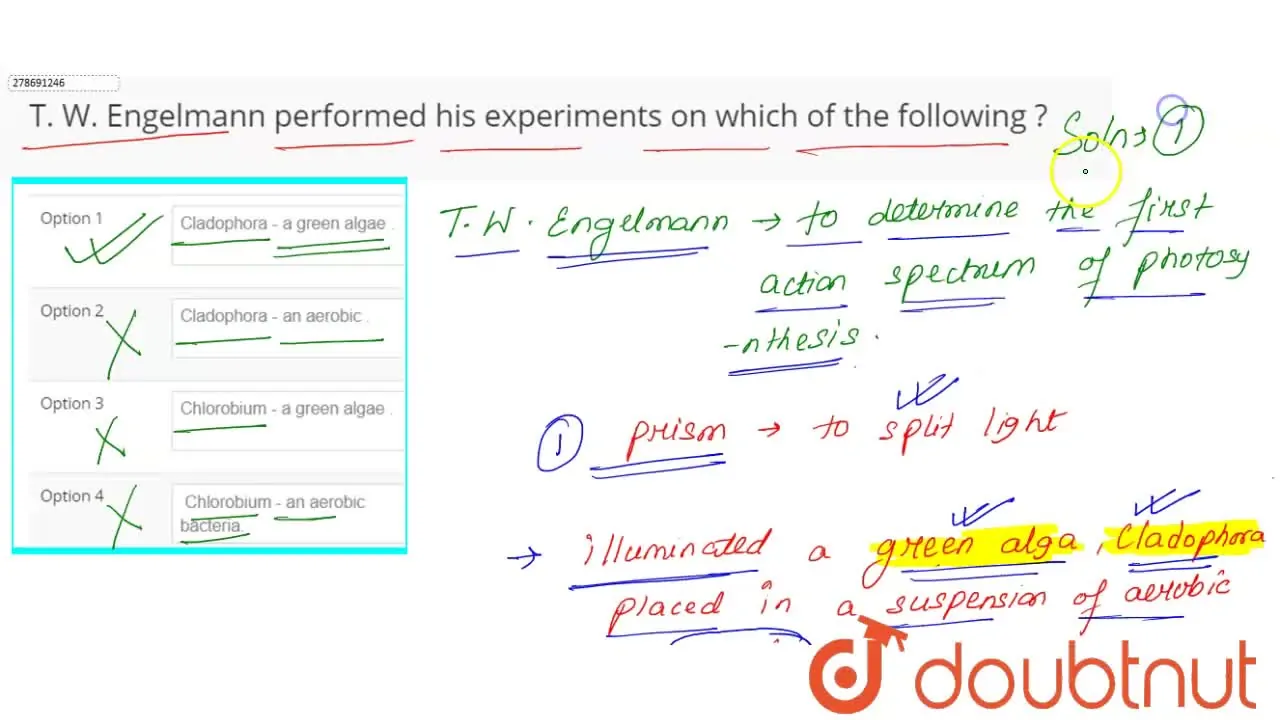 278691246
T. W. Engelmann performed his experiments on which of the following ?
Soln → 1
Option 1
Cladophora - a green algae .
Option 2
Cladophora - an aerobic .
Option 3
Chlorobium - a green algae .
Option 4
Chlorobium - an aerobic
bacteria.
T. W. Engelmann → to determine the first
action spectrum of photosy
-nthesis.
1 prism → to split light
→ illuminated a green alga, Cladophora
placed in a suspension of aerobic
doubtnut